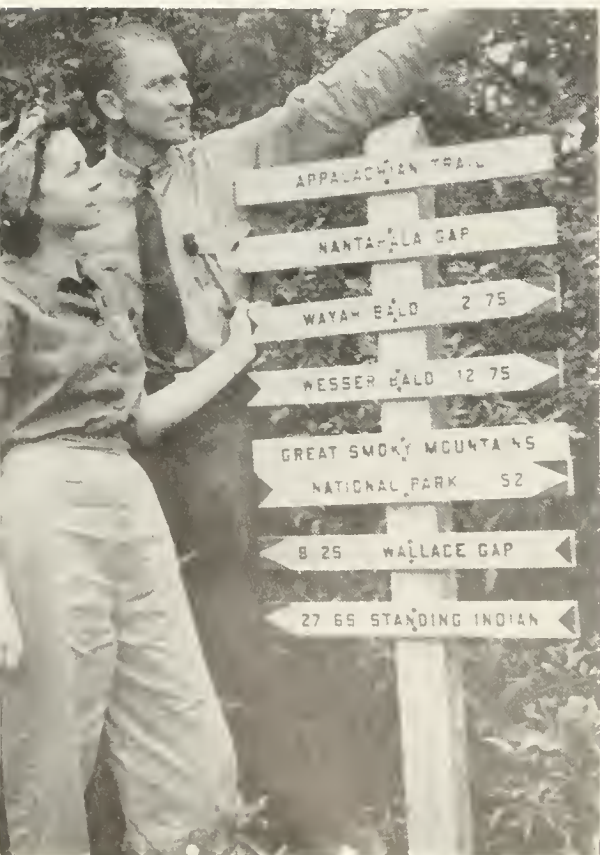 APPALACHIAN TRAIL
NANTAHALA GAP
WAYAH BALD 2 75
WESSER BALD 12 75
GREAT SMOKY MOUNTAINS
NATIONAL PARK 52
8 25 WALLACE GAP
27 65 STANDING INDIAN